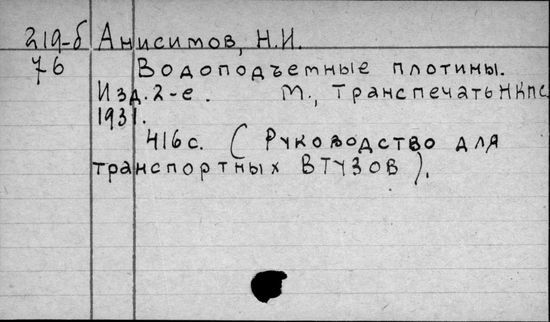 219-б Анисимов, Н.И.
76 Водоподъемные плотины.
Изд. 2-е. М., Транспечать НКПС
1931.
416 с. (Руководство для
транспортных ВТУЗОВ).